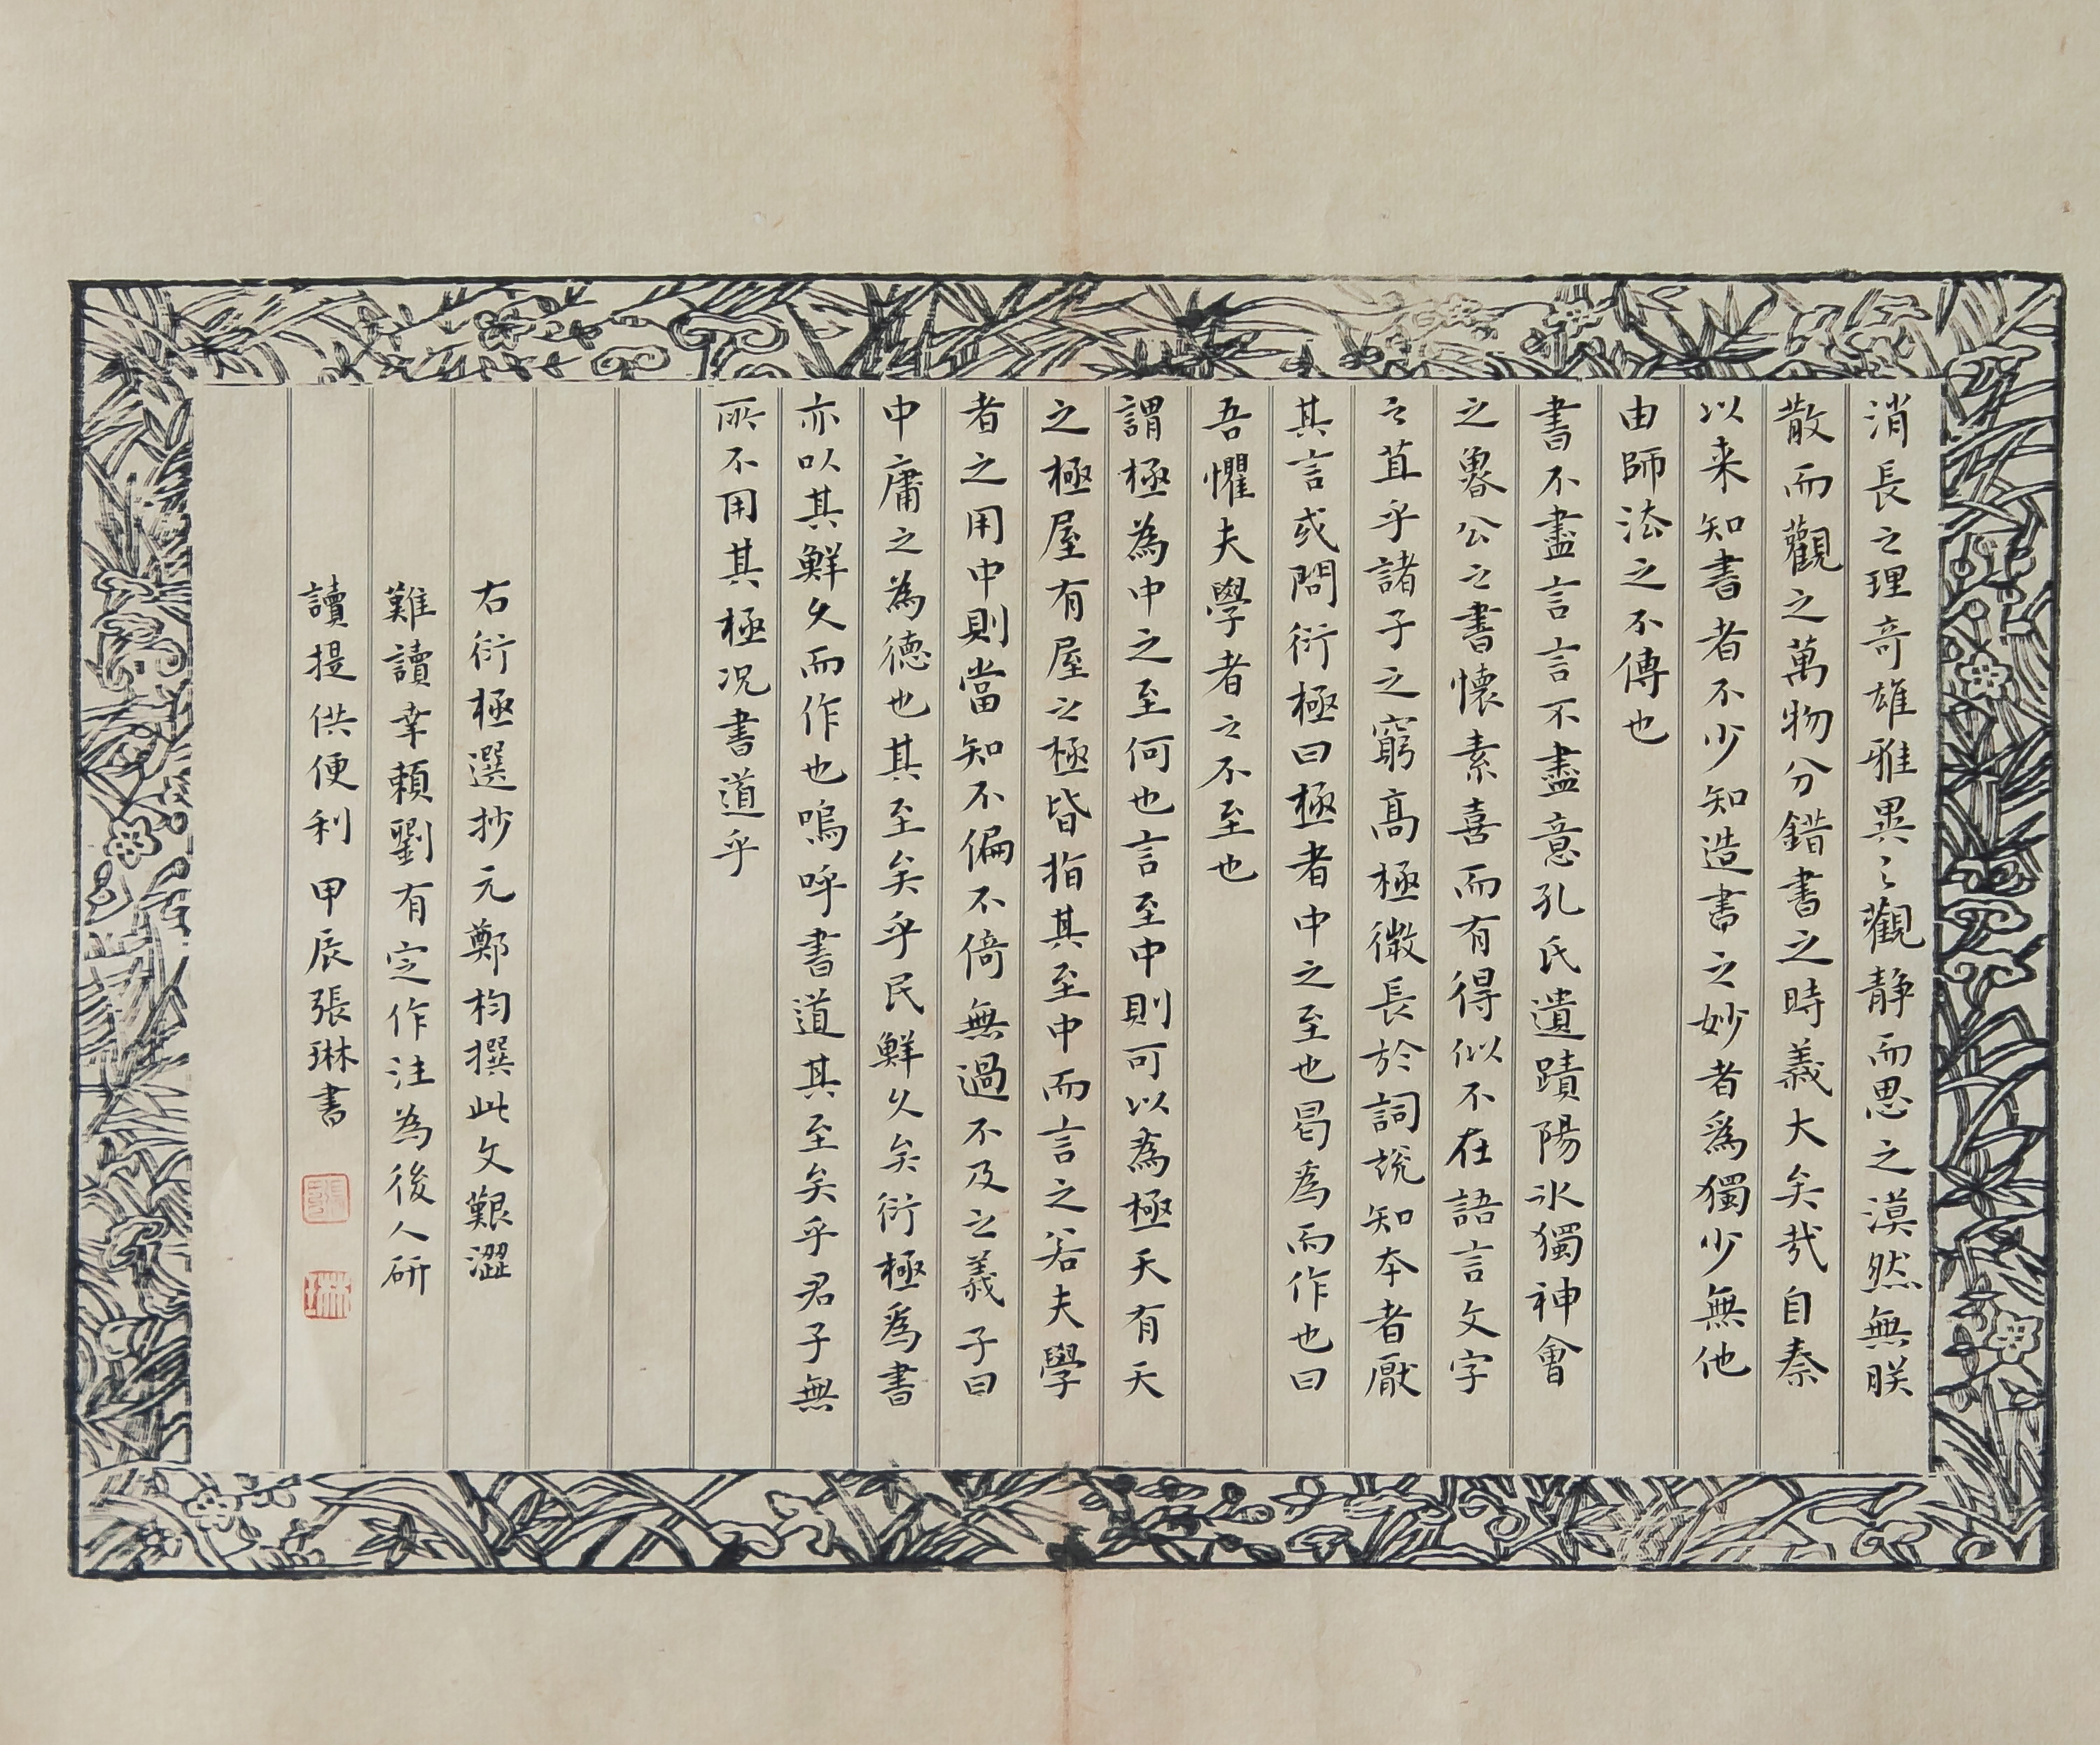 消長之理奇雄雅異之觀静而思之漠然無朕
散而觀之萬物分錯書之時義大矣㢤自秦
以来知書者不少知造書之妙者爲獨少無他
由師法之不傳也
書不盡言言不盡意孔氏遺蹟陽冰獨神會
之魯公之書懷素喜而有得似不在語言文字
之苴乎諸子之窮高極微長於詞說知本者厭
其言或問衍極曰極者中之至也曷爲而作也曰
吾懼夫學者之不至也
謂極為中之至何也言至中則可以為極天有天
之極屋有屋之極皆指其至中而言之若夫學
者之用中則當知不偏不倚無過不及之義子曰
中庸之為德也其至矣乎民鮮久矣衍極爲書
亦以其鮮久而作也嗚呼書道其至矣乎君子無
所不用其極况書道乎
右衍極選抄元鄭杓撰此文艱澀
難讀幸賴劉有定作注為後人研
讀提供便利 甲辰張琳書
張
琳